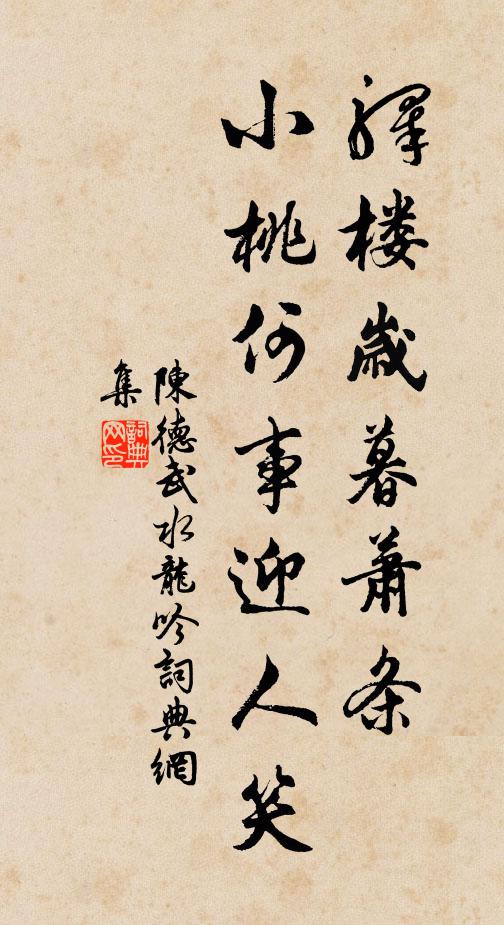 驿楼歲暮蕭条
小桃何事迎人笑
陳德武水龍吟詞典網
集
詞典網印